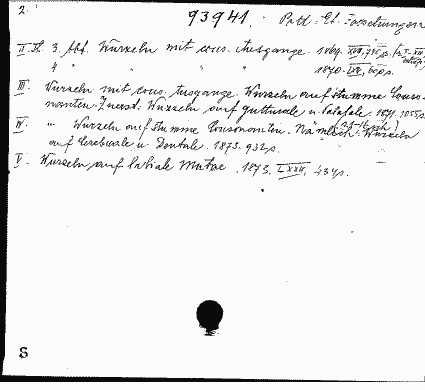 2. 93941. Pott: Et. Forschungen
II Th. 3. Abt. Wurzeln mit cons. Ausgange. 1869. XVI, 745 p.
4 " " " " 1870. IX,
III. Wurzeln mit cons. Ausgange. Wurzeln auf stumme Conso-
nanten. Zuerst: Wurzeln auf gutturale u. Palatale. 1871. 1055 p.
IV. " Wurzeln auf stumme Consonanten. Nämlich: Wurzeln
auf Cerebrale u. Dentale. 1873. 932 p.
V. Wurzeln auf labiale Mutae. 1873. LXXII, 434 p.
S